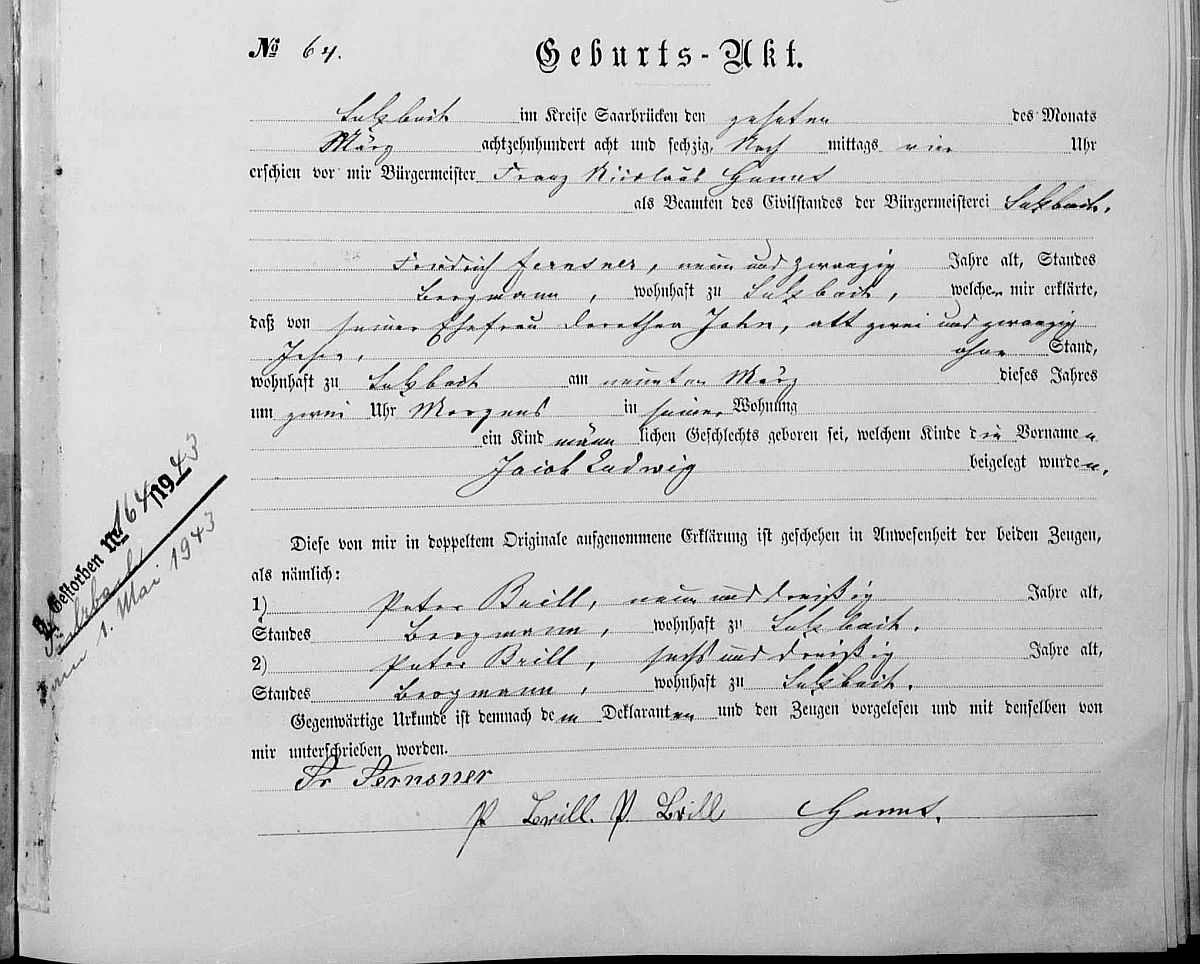 № 64. Geburts-Akt.
Sulzbach im Kreise Saarbrücken den zehnten des Monats
März achtzehnhundert acht und sechzig, Nach mittags vier Uhr
erschien vor mir Bürgermeister Franz Nicolaus
als Beamten des Civilstandes der Bürgermeisterei Sulzbach,
Friedrich Fernsner, neun und zwanzig Jahre alt, Standes
Bergmann, wohnhaft zu Sulzbach, welcher mir erklärte,
daß von seiner Ehefrau Dorothea John, alt zwei und zwanzig
Jahre, ohne Stand,
wohnhaft zu Sulzbach am neunten März dieses Jahres
um zwei Uhr Morgens in seiner Wohnung
ein Kind männlichen Geschlechts geboren sei, welchem Kinde die Vornamen
Jacob Ludwig beigelegt wurden,
Diese von mir in doppeltem Originale aufgenommene Erklärung ist geschehen in Anwesenheit der beiden Zeugen,
als nämlich:
1) Peter Brill, neun und dreißig Jahre alt,
Standes Bergmann, wohnhaft zu Sulzbach.
2) Peter Brill, sechs und dreißig Jahre alt,
Standes Bergmann, wohnhaft zu Sulzbach.
Gegenwärtige Urkunde ist demnach dem Deklaranten und den Zeugen vorgelesen und mit denselben von
mir unterschrieben worden.
Fr Fernsner
P Brill. P. Brill
Gestorben № 164/1943
Sulzbach
am 1. Mai 1943